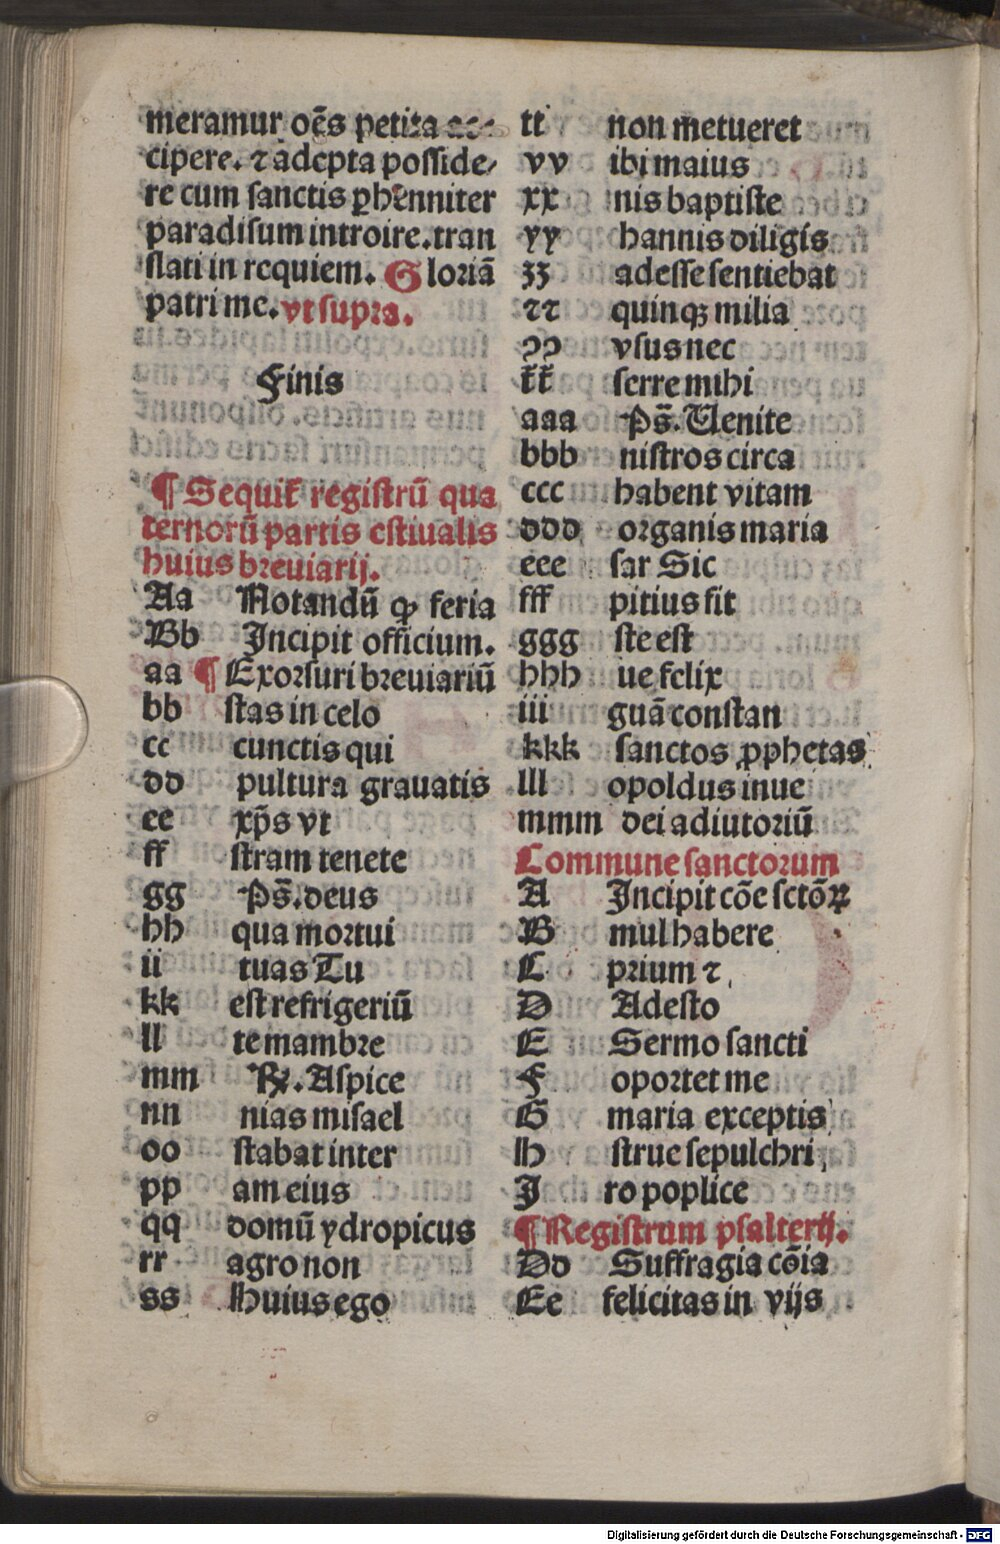 meramur oẽs petita ac-
cipere. ⁊ adepta posside/
re cum sanctis ꝑhenniter
paradisum introire. tran
slati in requiem. Gloriã
patri me. vt supra.
Finis
¶ Sequit᷑ registrũ qua
ternorũ partis estiualis
huius breuiarij.
Aa Notandũ ꝙ feria
Bb Incipit officium.
aa ¶ Exorsuri breuiariũ
bb stas in celo
cc cunctis qui
dd pultura grauatis
ee xp̃s vt
ff stram tenete
gg Ps̃. deus
hh qua mortui
ii tuas Tu
kk est refrigeriũ
ll te mambre
mm ℞. Aspice
nn nias misael
oo stabat inter
pp am eius
qq domũ ydropicus
rr agro non
ss Huius ego
tt non metueret
vv ibi maius
xx nis baptiste
yy hannis diligis
zz adesse sentiebat
⁊⁊ quinqꝫ milia
ꝯꝯ vsus nec
t᷑t᷑ ferre mihi
aaa Ps̃. Uenite
bbb nistros circa
ccc habent vitam
ddd organis maria
eee sar Sic
fff pitius fit
ggg ste est
hhh ue felix
iii guã constan
kkk sanctos ꝓphetas
lll opoldus inue
mmm dei adiutoriũ
Commune sanctorum
A Incipit cõe sctõꝝ
B mul habere
C prium ⁊
D Adesto
E Sermo sancti
F oportet me
G maria exceptis
H strue sepulchri
J ro poplice
¶ Registrum psalterij.
Dd Suffragia cõia
Ee felicitas in vijs
Digitalisierung gefördert durch die Deutsche Forschungsgemeinschaft - DFG